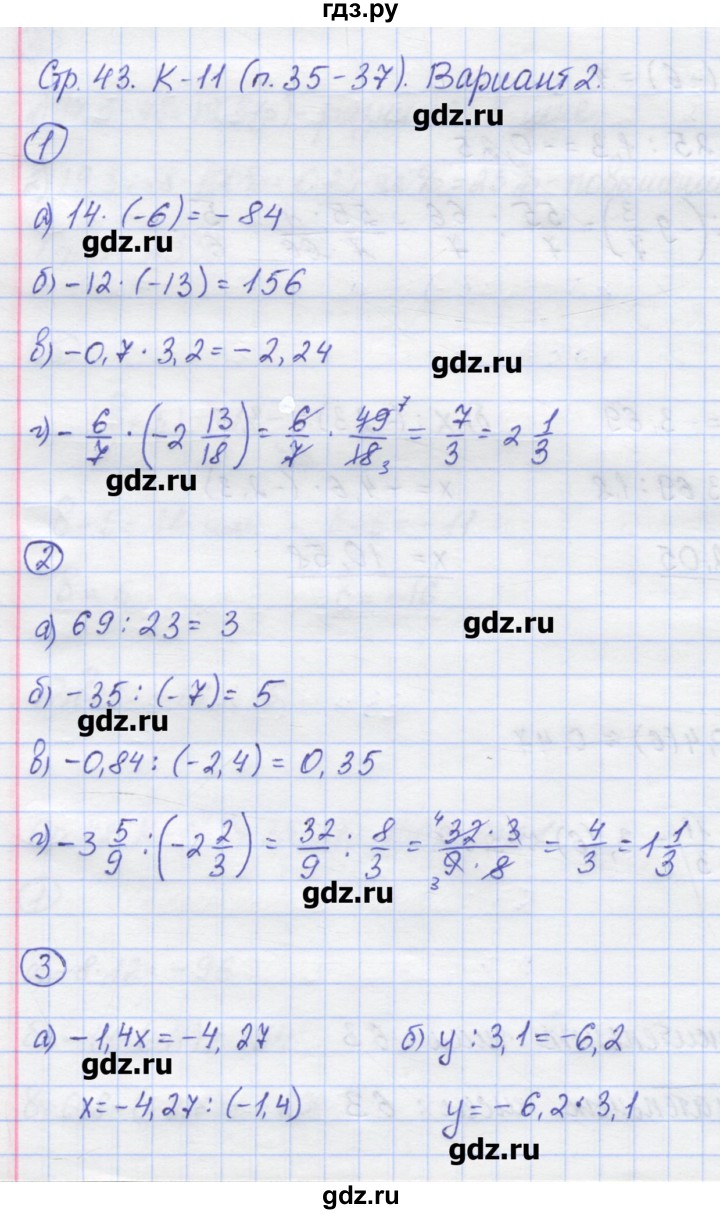 гдз.ру
Стр. 43. К-11 (п. 35-37). Вариант 2.
gdz.ru
1
а) 14 · (-6) = -84
gdz.ru
б) -12 · (-13) = 156
в) -0,7 · 3,2 = -2,24
gdz.ru
г) - 6/7 · (-2 13/18) = 6/7 · 49 7/18 3 = 7/3 = 2 1/3
gdz.ru
2
а) 69 : 23 = 3
gdz.ru
б) -35 : (-7) = 5
gdz.ru
в) -0,84 : (-2,4) = 0,35
г) -3 5/9 : (-2 2/3) = 32/9 : 8/3 = 4 32 · 3 / 3 9 · 8 = 4/3 = 1 1/3
gdz.ru
3
а) -1,4x = -4,27 б) y : 3,1 = -6,2
gdz.ru
x = -4,27 : (-1,4) y = -6,2 · 3,1
gdz.ru
gdz.ru